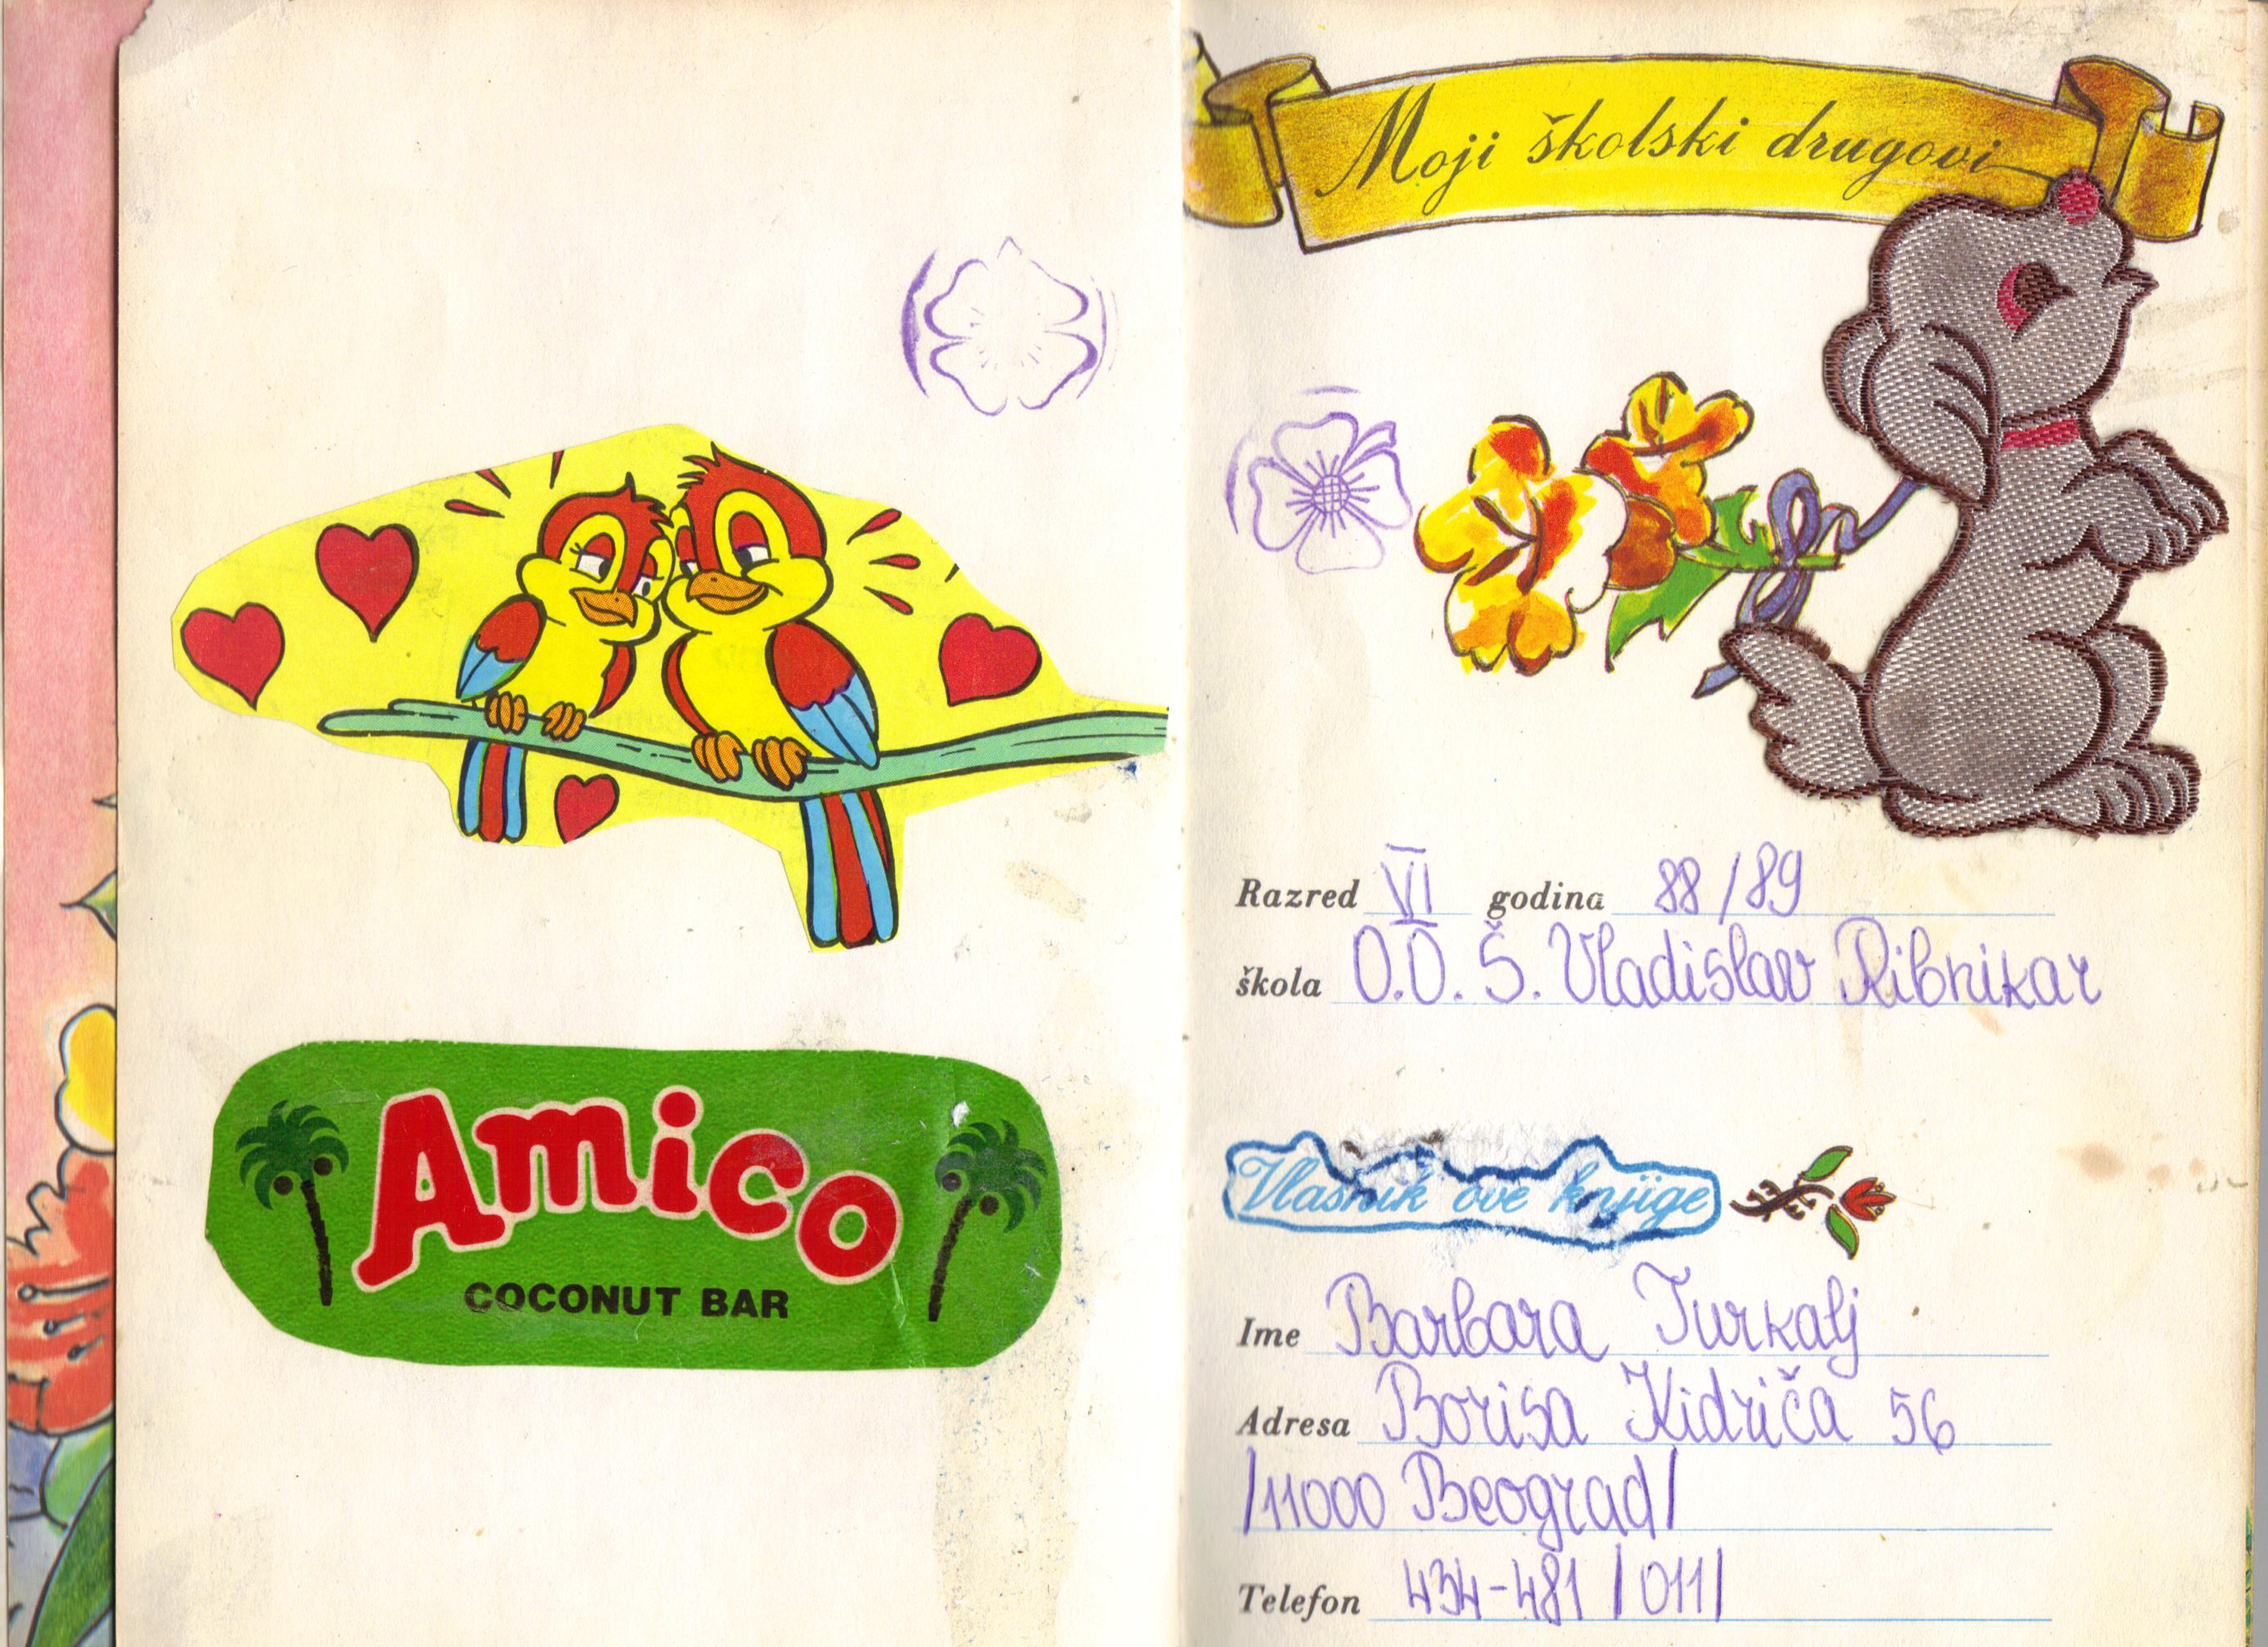 Amico
COCONUT BAR
Moji školski drugovi
Razred VI godina 88/89
škola O.O.Š. Vladislav Ribnikar
Vlasnik ove knjige
Ime Barbara Turkalj
Adresa Borisa Kidriča 56
/11000 Beograd/
Telefon 434-481 /011/